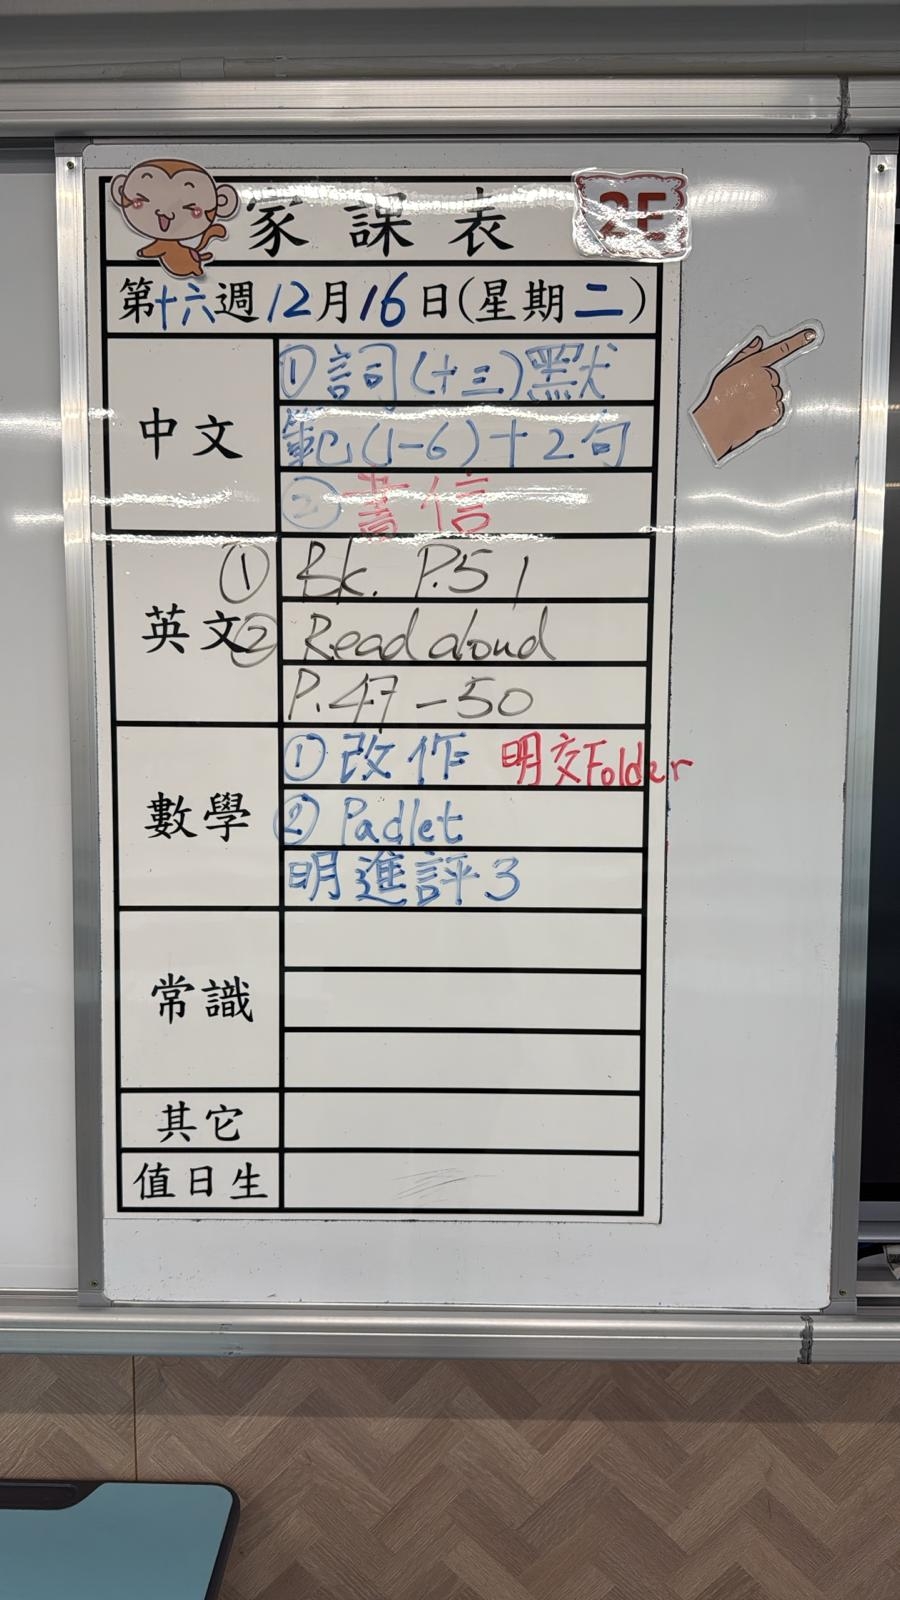 家課表 2E
第十六週12月16日(星期二)
中文
①詞(十三)默
範(1-6)+2句
②書信
英文
① Bk. P.51
② Read aloud
P.47-50
數學
①改作 明交Folder
② Padlet
明進評3
常識
其它
值日生